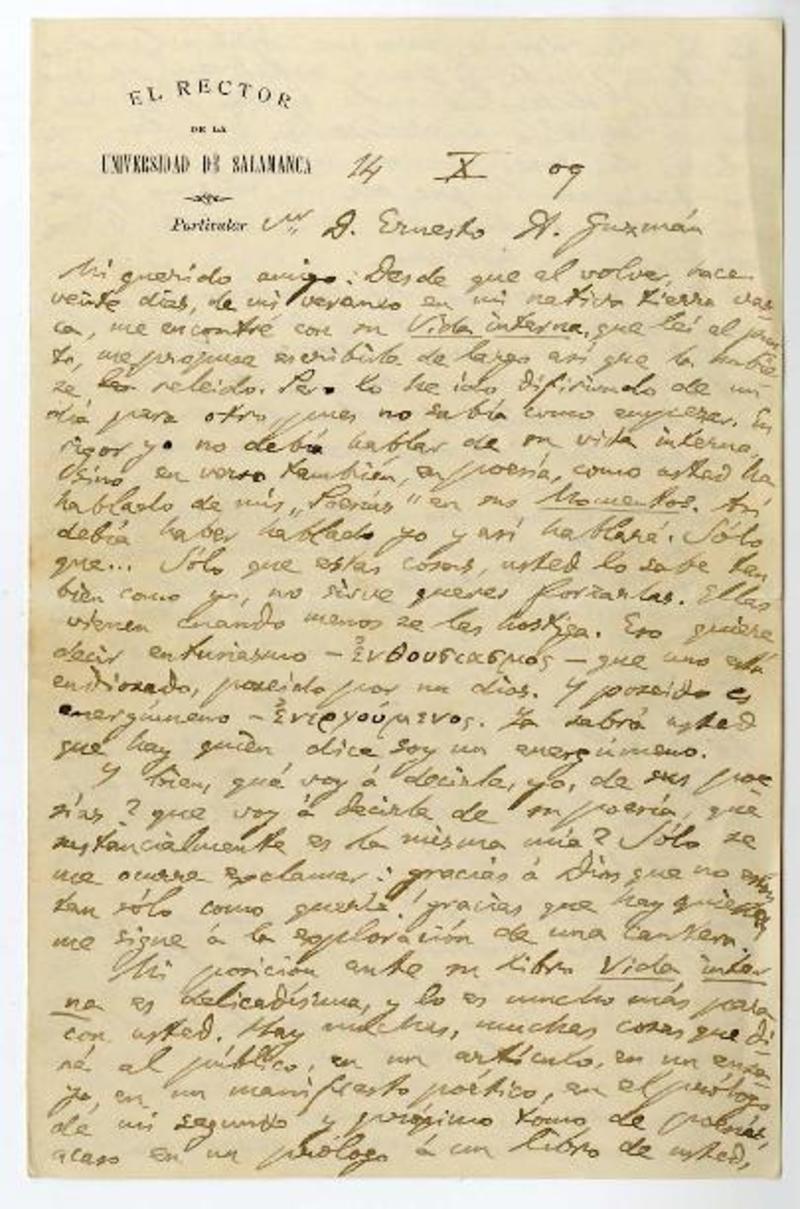 EL RECTOR
DE LA
UNIVERSIDAD DE SALAMANCA
14 X 09
Particular
Sr. D. Ernesto A. Guzmán
Mi querido amigo: Desde que al volver, hace
veinte días, de mi veraneo en mi nativa tierra vas-
ca, me encontré con su Vida interna, que leí al pun-
to, me propuse escribirle de largo así que la hubie-
se releido. Pero lo he ido difiriendo de un
día para otro, pues no sabía como empezar. En
rigor yo no debía hablar de su vida interna,
sino en verso también, en poesía, como usted ha
hablado de mis „Poesías" en sus Momentos. Así
debía haber hablado yo y así hablaré. Sólo
que... Sólo que estas cosas, usted lo sabe tan
bien como yo, no sirve querer forzarlas. Ellas
vienen cuando menos se les hostiga. Eso quiere
decir entusiasmo – ἐνθουσιασμος – que uno está
endiosado, poseido por un dios. Y poseido es
energúmeno – ἐνεργούμενος. Ya sabrá usted
que hay quien dice soy un energúmeno.
Y bien, qué voy á decirle, yo, de sus poe-
sías? que voy á decirle de su poesía, que
sustancialmente es la misma mía? Sólo se
me ocurre exclamar: gracias á Dios que no estoy
tan sólo como quería! gracias que hay quien
me sigue á la exploración de una cantera!
Mi posición ante su libro Vida inter-
na es delicadísima, y lo es mucho más para
con usted. Hay muchas, muchas cosas que di-
ré al público, en un artículo, en un ensa-
yo, en un manifiesto poético, en el prólogo
de mi segundo y próximo tomo de poesías,
acaso en un prólogo á un libro de usted,